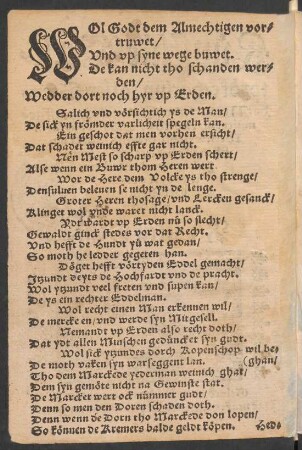 WOl Godt dem Almechtigen vor-
truwet/
Vnd vp syne wege buwet.
De kan nicht tho schanden wer-
den/
Wedder dort noch hyr vp Erden.
Salich vnd vörsichtich ys de Man/
De sick yn frömder varlicheit spegeln kan.
Ein geschot dat men vorhen ersicht/
Dat schadet weinich effte gar nicht.
Nen Mest so scharp vp Erden schert/
Alse wenn ein Buwr thom Heren wert.
Wor de Here dem Volcke ys tho strenge/
Densüluen beleuen se nicht yn de lenge.
Groter Heren thosage/vnd Lercken gesanck/
Klinget wol vnde waret nicht lanck.
Ydt wardt vp Erden nü so slecht/
Gewaldt ginck stedes vor dat Recht.
Vnd hefft de Hundt yü wat gedan/
So moth he ledder gegeten han.
Döget hefft vörtyden Eddel gemacht/
Jtzundt deyts de Hochfardt vnd de pracht.
Wol ytzundt veel freten vnd supen kan/
De ys ein rechter Eddelman.
Wol recht einen Man erkennen wil/
De mercke en/vnd werde syn Mitgesell.
Nemandt vp Erden also recht doth/
Dat ydt allen Minschen gedüncket syn gudt.
Wol sick ytzundes dorch Kopenschop wil be-
De moth vaken syn warseggent lan. (ghan/
Tho dem Marckede yederman weinich ghat/
Dem syn gemöte nicht na Gewinste stat.
De Marcket wert ock nümmer gudt/
Denn so men den Doren schaden doth.
Denn wenn de Dorn tho Marckede don lopen/
So können de Kremers balde geldt köpen.
Hed-